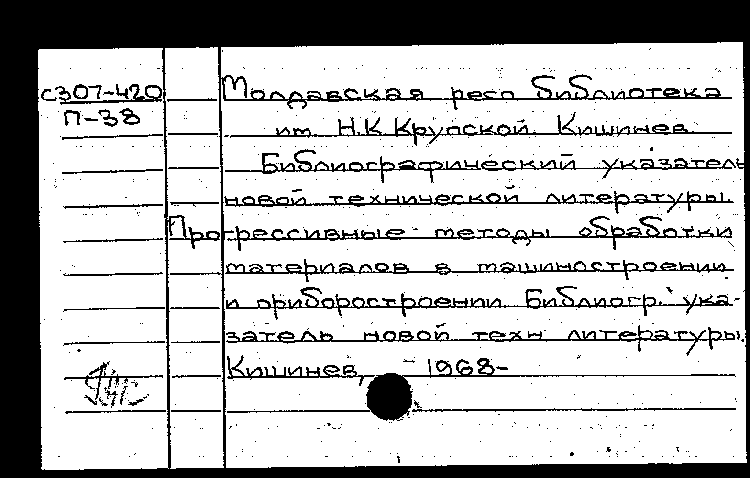 С307-420
П-38
Молдавская респ библиотека
им. Н.К Крупской. Кишинев.
Библиографический указатель
новой технической литературы.
Прогрессивные методы обработки
материалов в машиностроении
и приборостроении. Библиогр. ука-
затель новой техн литературы.
Кишинев, - 1968-